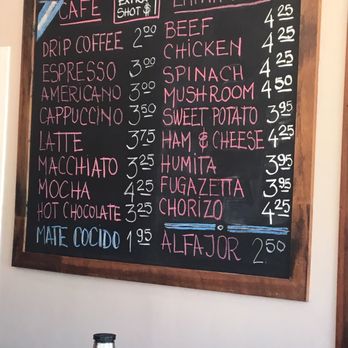 CAFE
EXTRA
SHOT $1
DRIP COFFEE 2.00
ESPRESSO 3.00
AMERICANO 3.00
CAPPUCCINO 3.50
LATTE 3.75
MACCHIATO 3.25
MOCHA 4.25
HOT CHOCOLATE 3.25
MATE COCIDO 1.95
BEEF 4.25
CHICKEN 4.25
SPINACH 4.25
MUSHROOM 4.50
SWEET POTATO 3.95
HAM & CHEESE 4.25
HUMITA 3.95
FUGAZETTA 3.95
CHORIZO 4.25
ALFAJOR 2.50